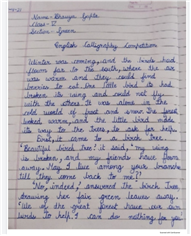 Name - Bhavya Gupta
Class - V
Section - Green
English Calligraphy Competition
Winter was coming, and the birds had
flown far to the south, where the air
was warm and they could find
berries to eat. One little bird had
broken its wing and could not fly
with the others. It was alone in the
cold world of frost and snow. The forest
looked warm, and the little bird made
its way to the trees, to ask for help.
First, it came to a birch tree.
"Beautiful birch tree!" it said, "my wing
is broken, and my friends have flown
away. May I live among your branches
till they come back to me?"
"No, indeed," answered the birch tree,
drawing her fair green leaves away.
"We of the great forest have our own
birds to help. I can do nothing for you